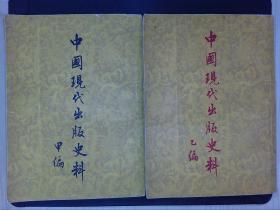 中國現代出版史料
甲編
中國現代出版史料
乙編